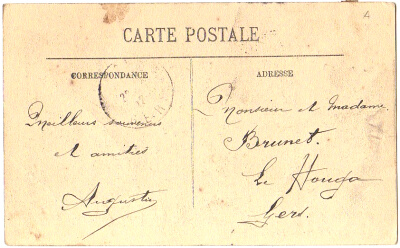 4
CARTE POSTALE
CORRESPONDANCE
ADRESSE
Meilleurs souvenirs
et amitiés
Augusta
Monsieur et Madame
Brunet.
Le Houga
Gers.